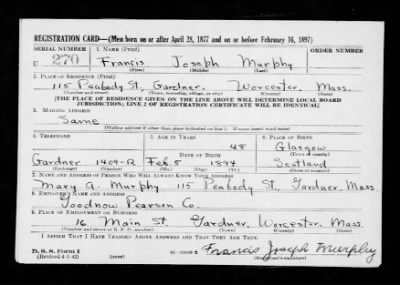 REGISTRATION CARD—(Men born on or after April 28, 1877 and on or before February 16, 1897)
SERIAL NUMBER 1. NAME (Print) ORDER NUMBER
U 270 Francis Joseph Murphy
(First) (Middle) (Last)
2. PLACE OF RESIDENCE (Print)
115 Peabody St. Gardner, Worcester, Mass.
(Number and street) (Town, township, village, or city) (County) (State)
[THE PLACE OF RESIDENCE GIVEN ON THE LINE ABOVE WILL DETERMINE LOCAL BOARD
JURISDICTION; LINE 2 OF REGISTRATION CERTIFICATE WILL BE IDENTICAL]
3. MAILING ADDRESS
Same
[Mailing address if other than place indicated on line 2. If same insert word same]
4. TELEPHONE 5. AGE IN YEARS 6. PLACE OF BIRTH
48 Glasgow
DATE OF BIRTH (Town or county)
Gardner 1409-R Feb. 5 1894 Scotland
(Exchange) (Number) (Mo.) (Day) (Yr.) (State or country)
7. NAME AND ADDRESS OF PERSON WHO WILL ALWAYS KNOW YOUR ADDRESS
Mary A. Murphy 115 Peabody St., Gardner, Mass.
8. EMPLOYER'S NAME AND ADDRESS
Goodnow Pearson Co.
9. PLACE OF EMPLOYMENT OR BUSINESS
76 Main St. Gardner, Worcester, Mass.
(Number and street or R. F. D. number) (Town) (County) (State)
I AFFIRM THAT I HAVE VERIFIED ABOVE ANSWERS AND THAT THEY ARE TRUE.
D. S. S. Form 1
(Revised 4-1-42) Francis Joseph Murphy
(Registrant's signature)